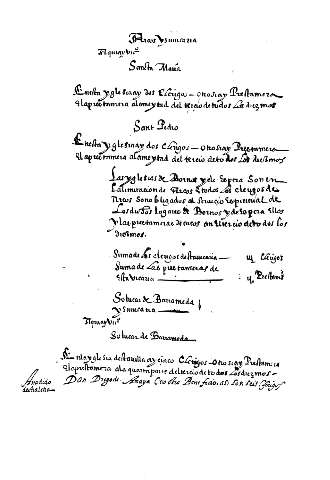 Arcos y su vicaria
Sancta Maria
En esta yglesia ay dos Clerigos – otrosi ay Prestamera
el aprestamera a la meytad del tercio de todos los diezmos
Sant Pedro
En esta yglesia ay dos Clerigos – otrosi ay Prestamera
el aprestamera a la meytad del tercio de todos los diezmos
Las yglesias de Bornos y de espera son en
la limitacion de Arcos todos los clerigos de
Arcos son obligados al servicio espiritual de
los dichos lugares de Bornos y de espera ellos
y las prestameras de arcos an tercio de todos los
diezmos.
Suma de los clerigos de sta vicaria — iiij Clerigos
Suma de las prestameras de
esta vicaria — ij Prestam
Solucar de Barameda
y su vicaria
Solucar de Barameda
En la yglesia de sta villa ay cinco Clerigos – otrosi ay Prestamera
el aprestamera a la quarta parte del tercio de todos los diezmos –
Don Diego de Anaya